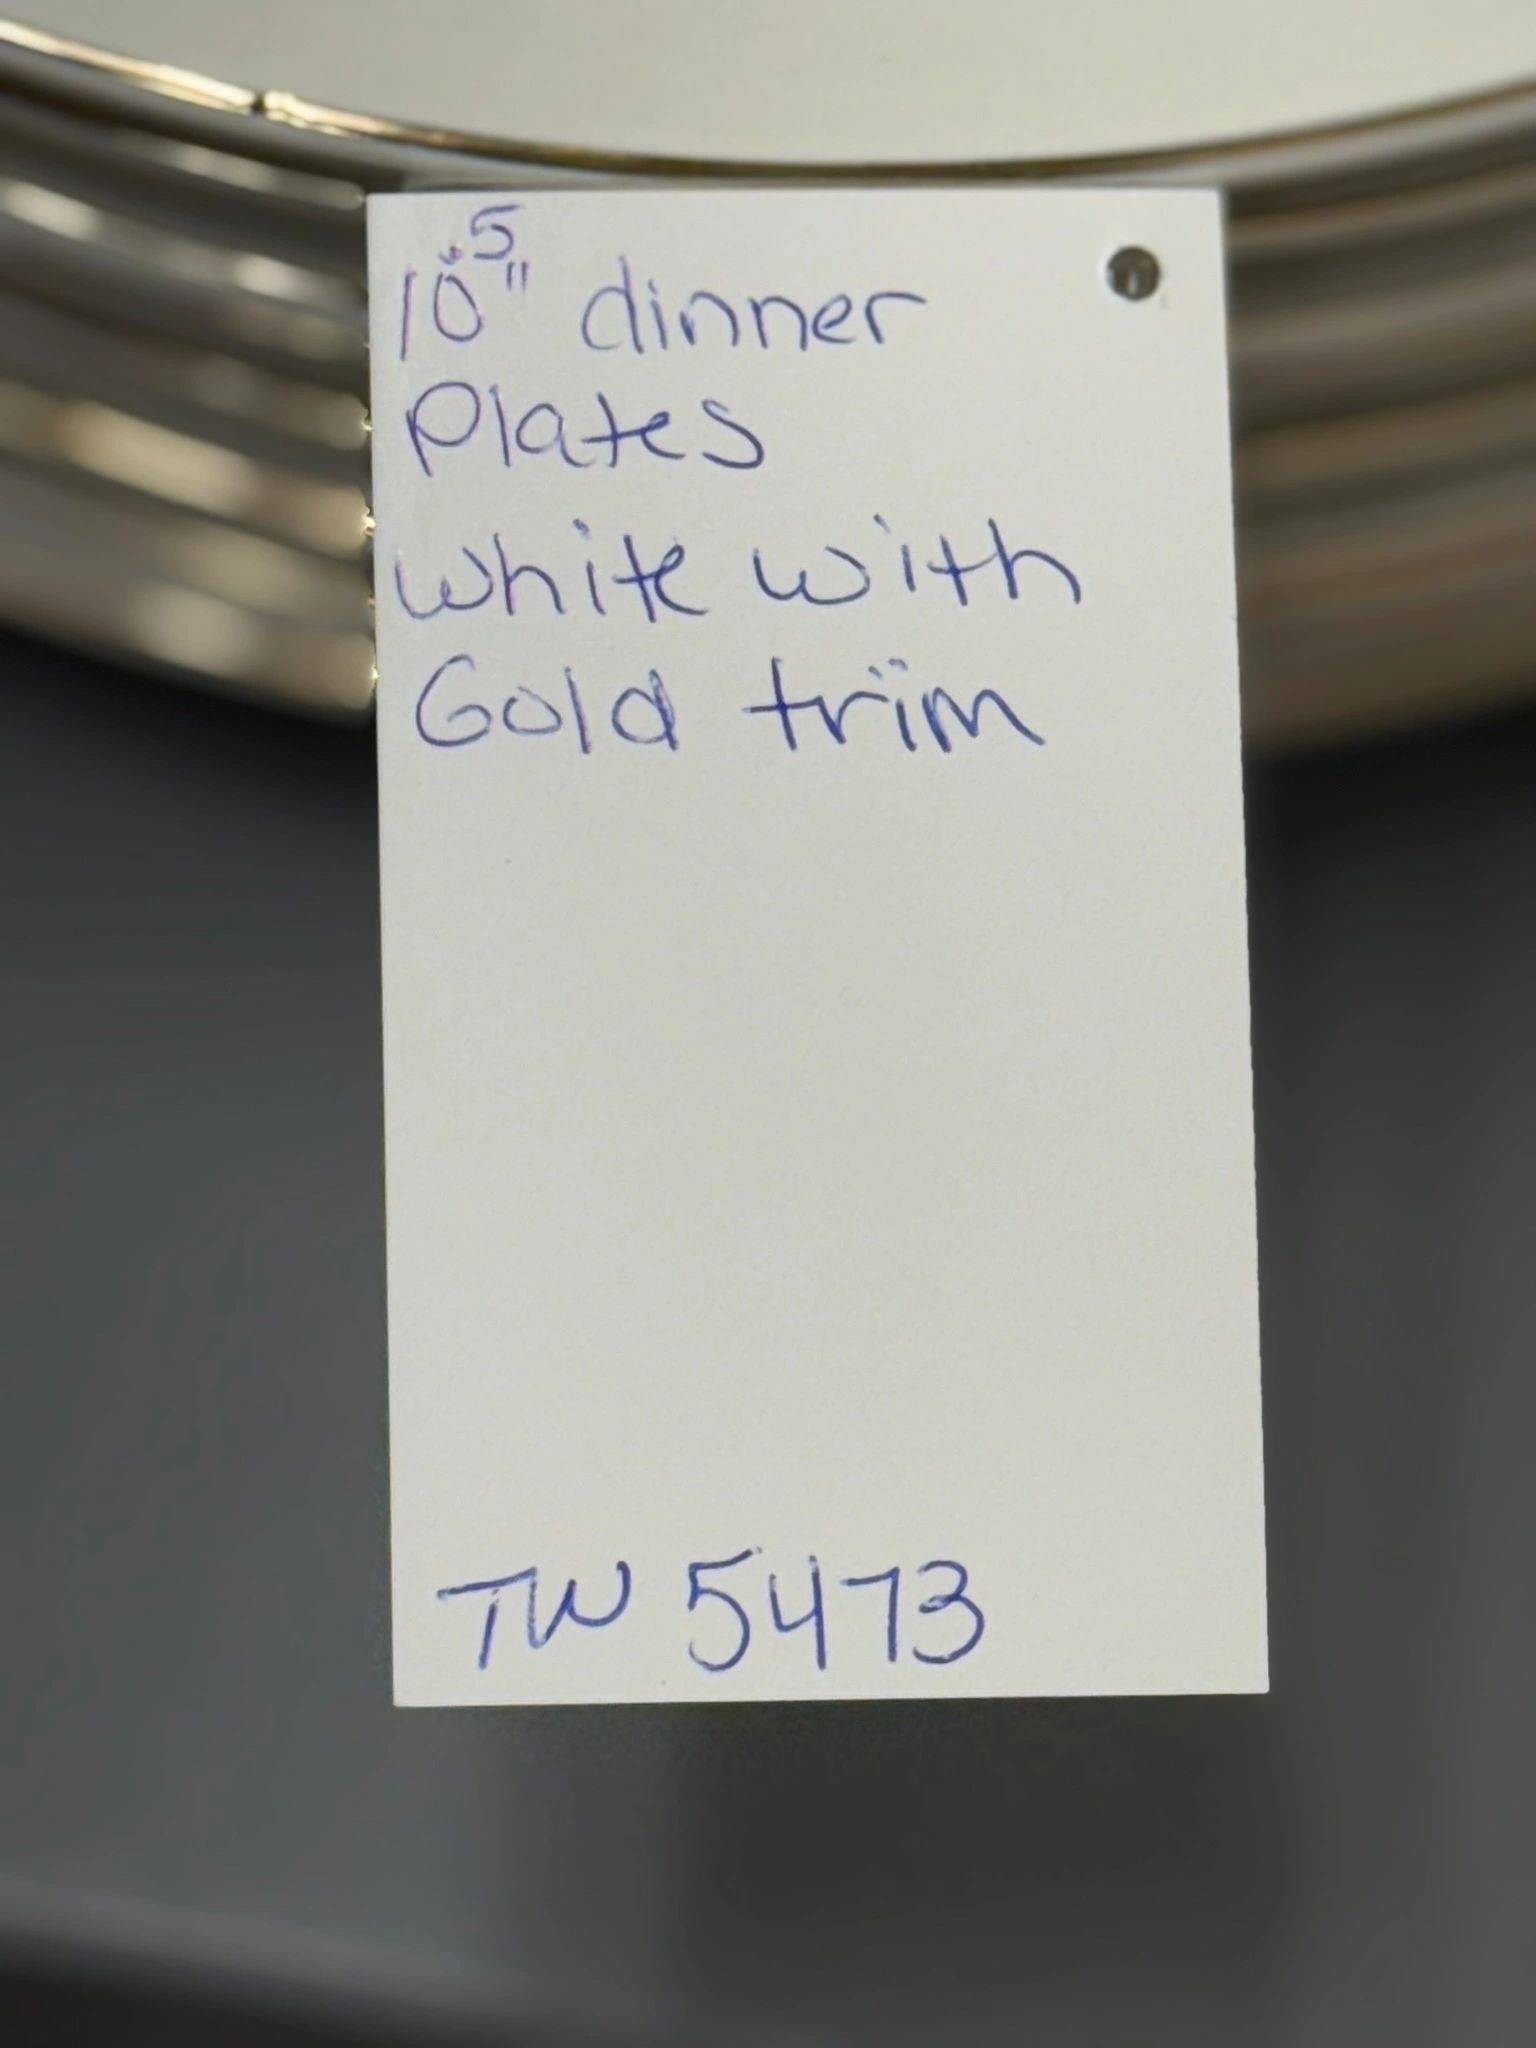 10.5" dinner
Plates
white with
Gold trim
TW 5473